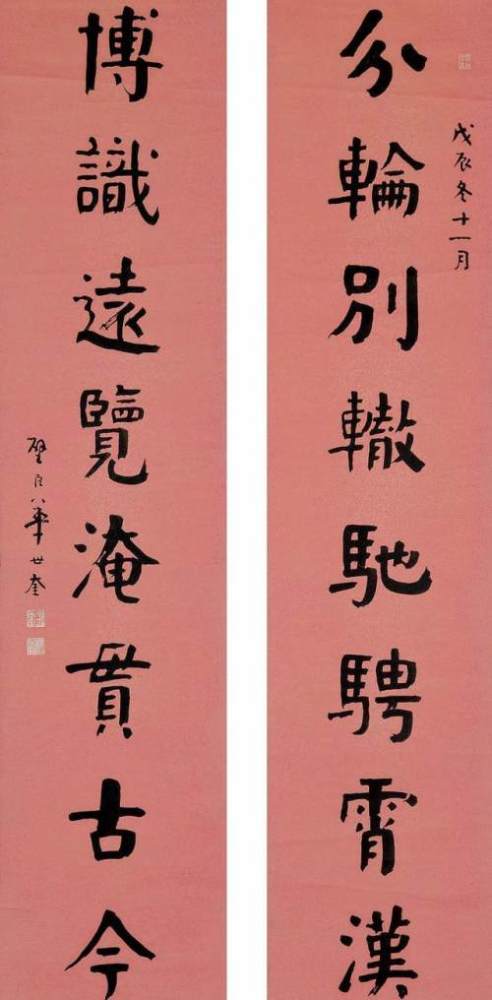 戊辰冬十一月
分輪別轍馳騁霄漢
博識遠覽淹貫古今
璧臣華世奎